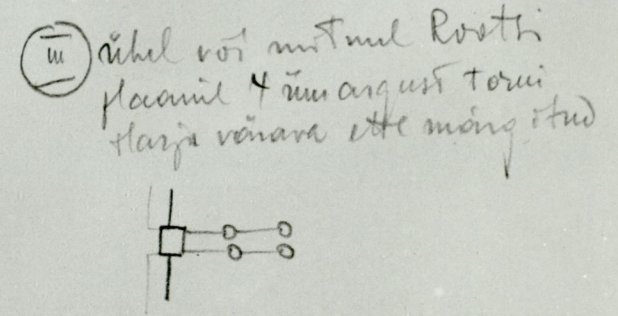 III ühel või mitmel Rootsi
plaanil 4 ümargust torni
Harja värava ette märgitud